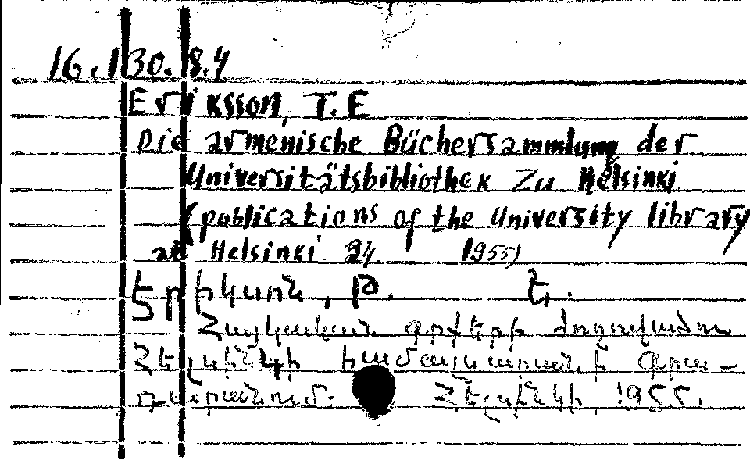 16.130.8.4
Eriksson, T.E
Die armenische Büchersammlung der
Universitätsbibliothek Zu Helsinki
(publications of the University library
at Helsinki 24. 1955)
Էրիկսոն, Թ. Է.
Հայկական գրքերի ժողովածու
Հելսինկիի համալսարանի գրա-
դարանում. Հելսինկի, 1955.